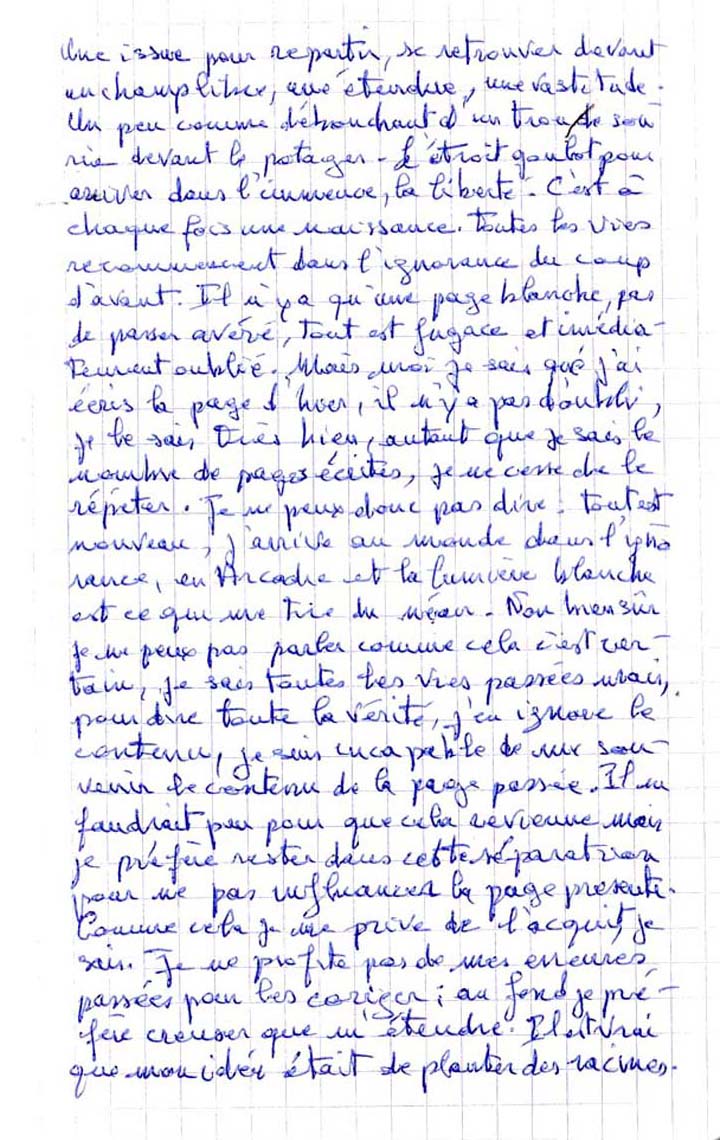 Une issue pour repartir, se retrouver devant
un champ libre, une étendue, une vastitude.
Un peu comme débouchant d'un trou de sou
ris devant le potager. L'étroit goulot pour
arriver dans l'immence, la liberté. C'est à
chaque fois une naissance. Toutes les vies
recommencent dans l'ignorance du coup
d'avant. Il n'y a qu'une page blanche, pas
de passer avéré, tout est fugace et imédia-
tement oublié. Mais moi je sais que j'ai
écris la page d'hier, il n'y a pas d'oubli,
je le sais très bien, autant que je sais le
nombre de pages écrites, je ne cesse de le
répéter. Je ne peux donc pas dire : tout est
nouveau, j'arrive au monde dans l'igno
rance, en Arcadie et la lumière blanche
est ce qui me tire du néan. Non bien sûr
je ne peux pas parler comme cela c'est cer-
tain, je sais toutes les vies passées mais,
pour dire toute la vérité, j'en ignore le
contenu, je suis incapable de me sou-
venir le contenu de la page passée. Il en
faudrait peu pour que cela revienne mais
je préfère rester dans cette séparation
pour ne pas influencer la page présente.
Comme cela je me prive de l'acquit, je
sais. Je ne profite pas de mes erreures
passées pour les coriger ; au fond je pré-
fère creuser que m'étendre. Il est vrai
que mon idée était de planter des racines.